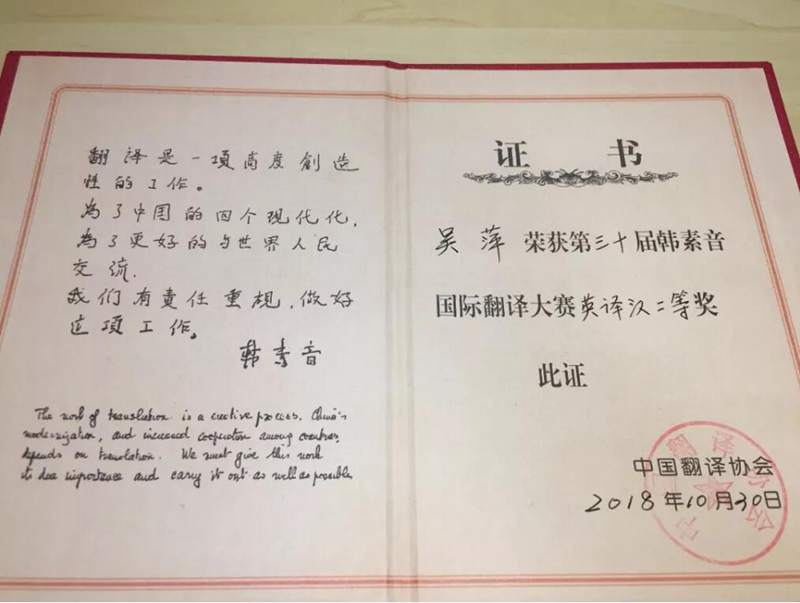 翻译是一項高度創造
性的工作。
為了中国的四个现代化,
為了更好的与世界人民
交流.
我们有責任重視,做好
这項工作。
韩素音
The work of translation is a creative process. China's
modernization, and increased cooperation among countries,
depends on translation. We must give this work
its due importance and carry it out as well as possible
证 书
吴萍 荣获第三十届韩素音
国际翻译大赛英译汉二等奖
此证
中国翻译协会
2018年10月30日